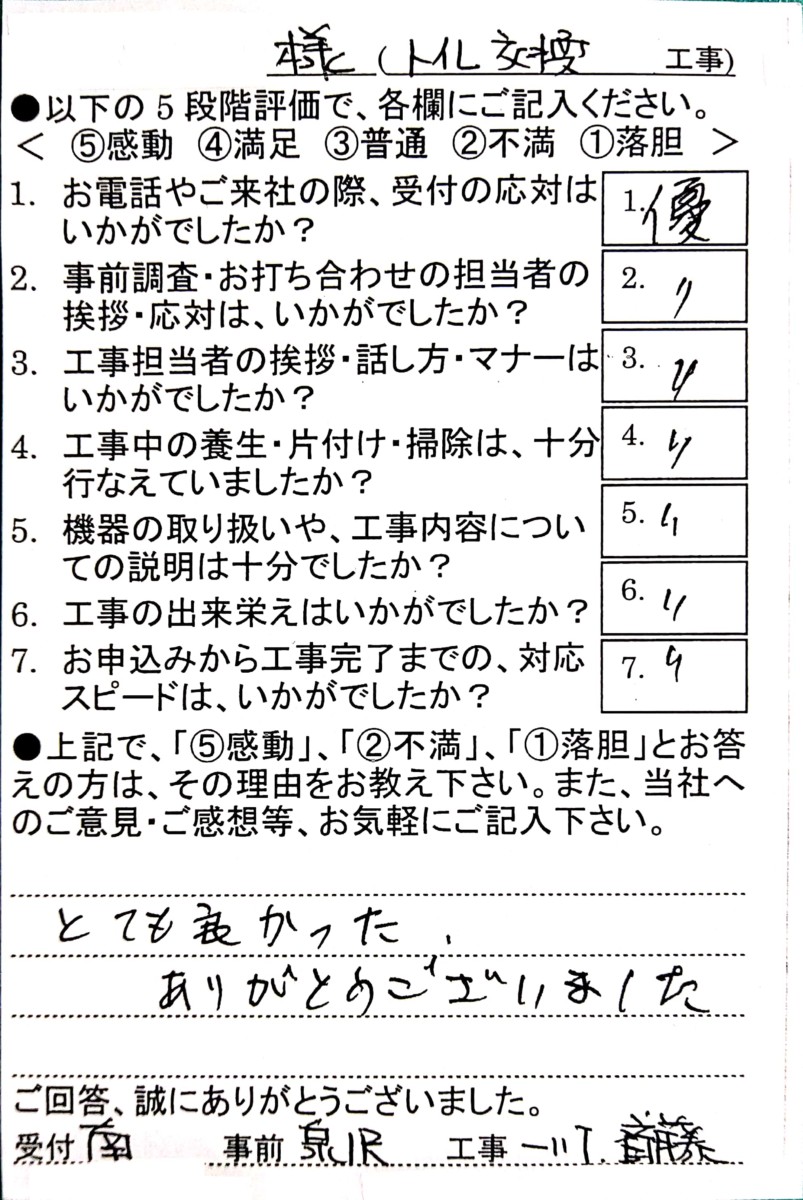 様 (トイレ交換 工事)
●以下の5段階評価で、各欄にご記入ください。
< ⑤感動 ④満足 ③普通 ②不満 ①落胆 >
1. お電話やご来社の際、受付の応対は
いかがでしたか?
1. 優
2. 事前調査・お打ち合わせの担当者の
挨拶・応対は、いかがでしたか?
2. 〃
3. 工事担当者の挨拶・話し方・マナーは
いかがでしたか?
3. 〃
4. 工事中の養生・片付け・掃除は、十分
行なえていましたか?
4. 〃
5. 機器の取り扱いや、工事内容につい
ての説明は十分でしたか?
5. 〃
6. 工事の出来栄えはいかがでしたか?
6. 〃
7. お申込みから工事完了までの、対応
スピードは、いかがでしたか?
7. 〃
●上記で、「⑤感動」、「②不満」、「①落胆」とお答
えの方は、その理由をお教え下さい。また、当社へ
のご意見・ご感想等、お気軽にご記入下さい。
とても良かった.
ありがとうございました
ご回答、誠にありがとうございました。
受付 南 事前 工事